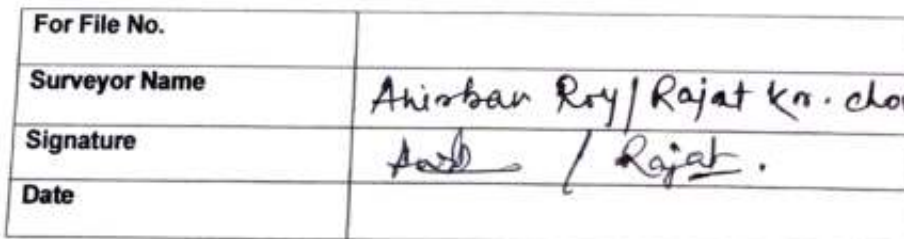 For File No.
Surveyor Name Anirban Roy / Rajat Kr. cho
Signature / Rajat.
Date